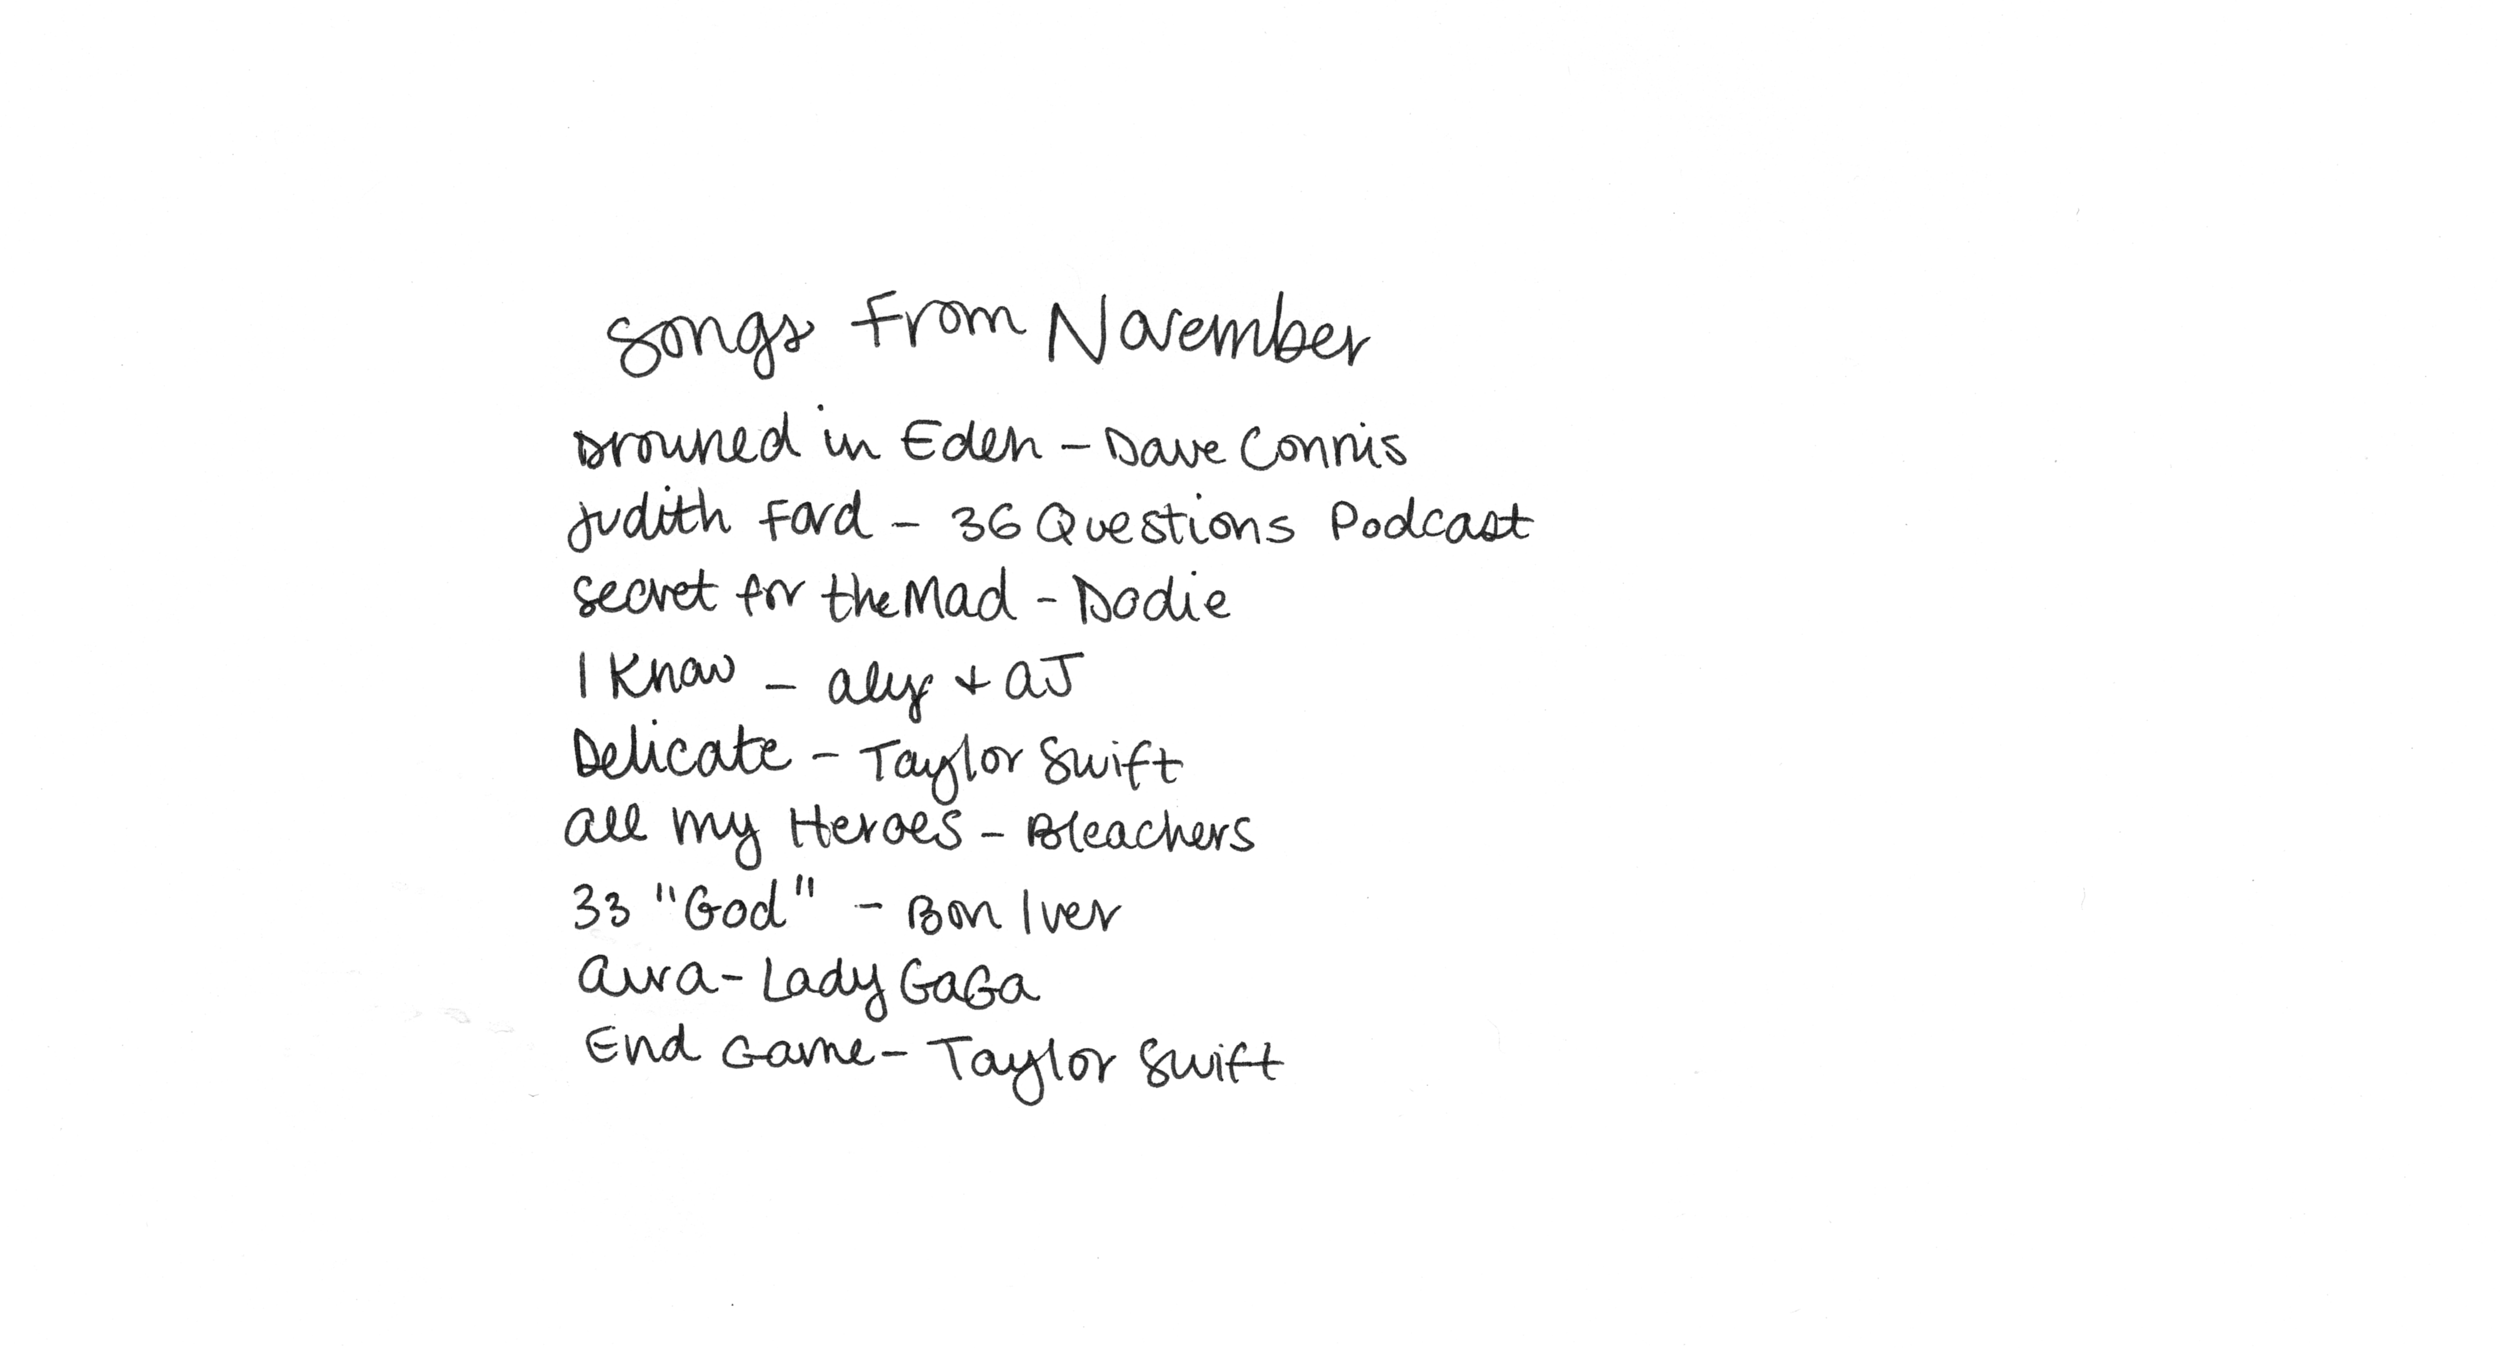 Songs From November
Drowned in Eden - Dave Connis
Judith Ford - 36 Questions Podcast
Secret for the Mad - Dodie
I Know - aly + aJ
Delicate - Taylor Swift
all my Heroes - Bleachers
33 "God" - Bon Iver
aura - Lady GaGa
End Game - Taylor Swift